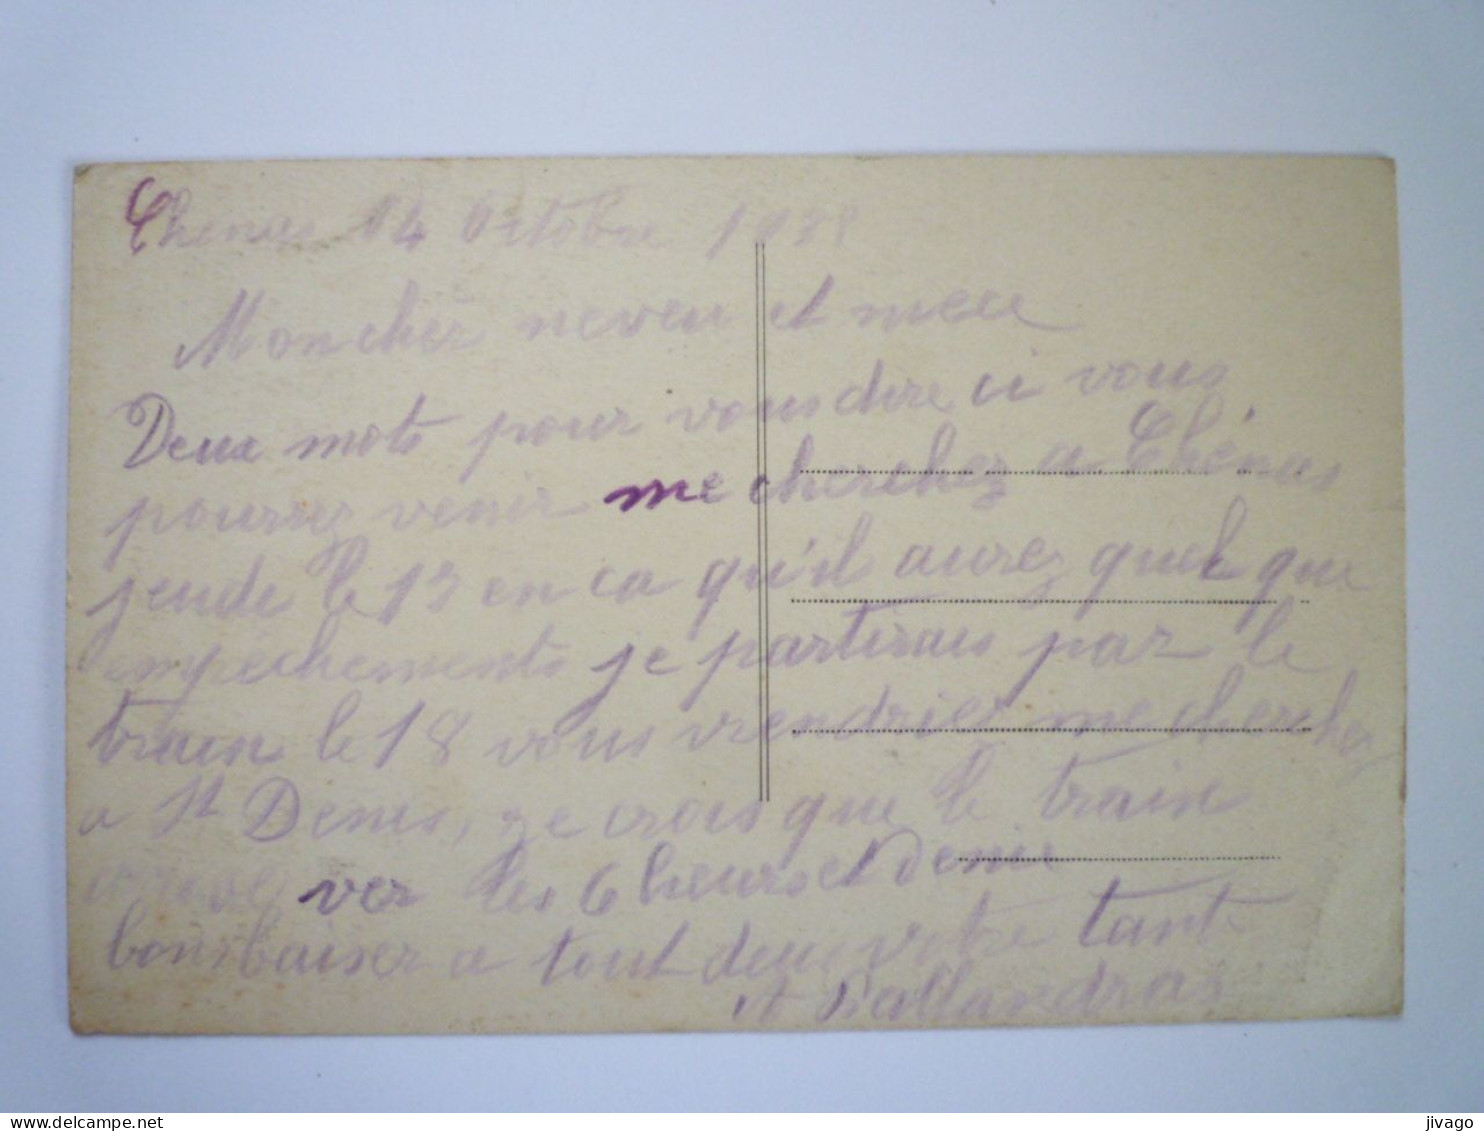 Chenas 14 Octobre
Mon cher neveu et niece
Deux mots pour vous dire ci vous
pourrez venir me cherchez a Chénas
jeudi le 15 en ca qu'il aurez quel que
empéchements je partirais par le
train le 18 vous viendriez me cherchez
a St Denis, je crois que le train
arrivez ver les 6 heurs et demie
bons baiser a tout deux votre tante
jivago